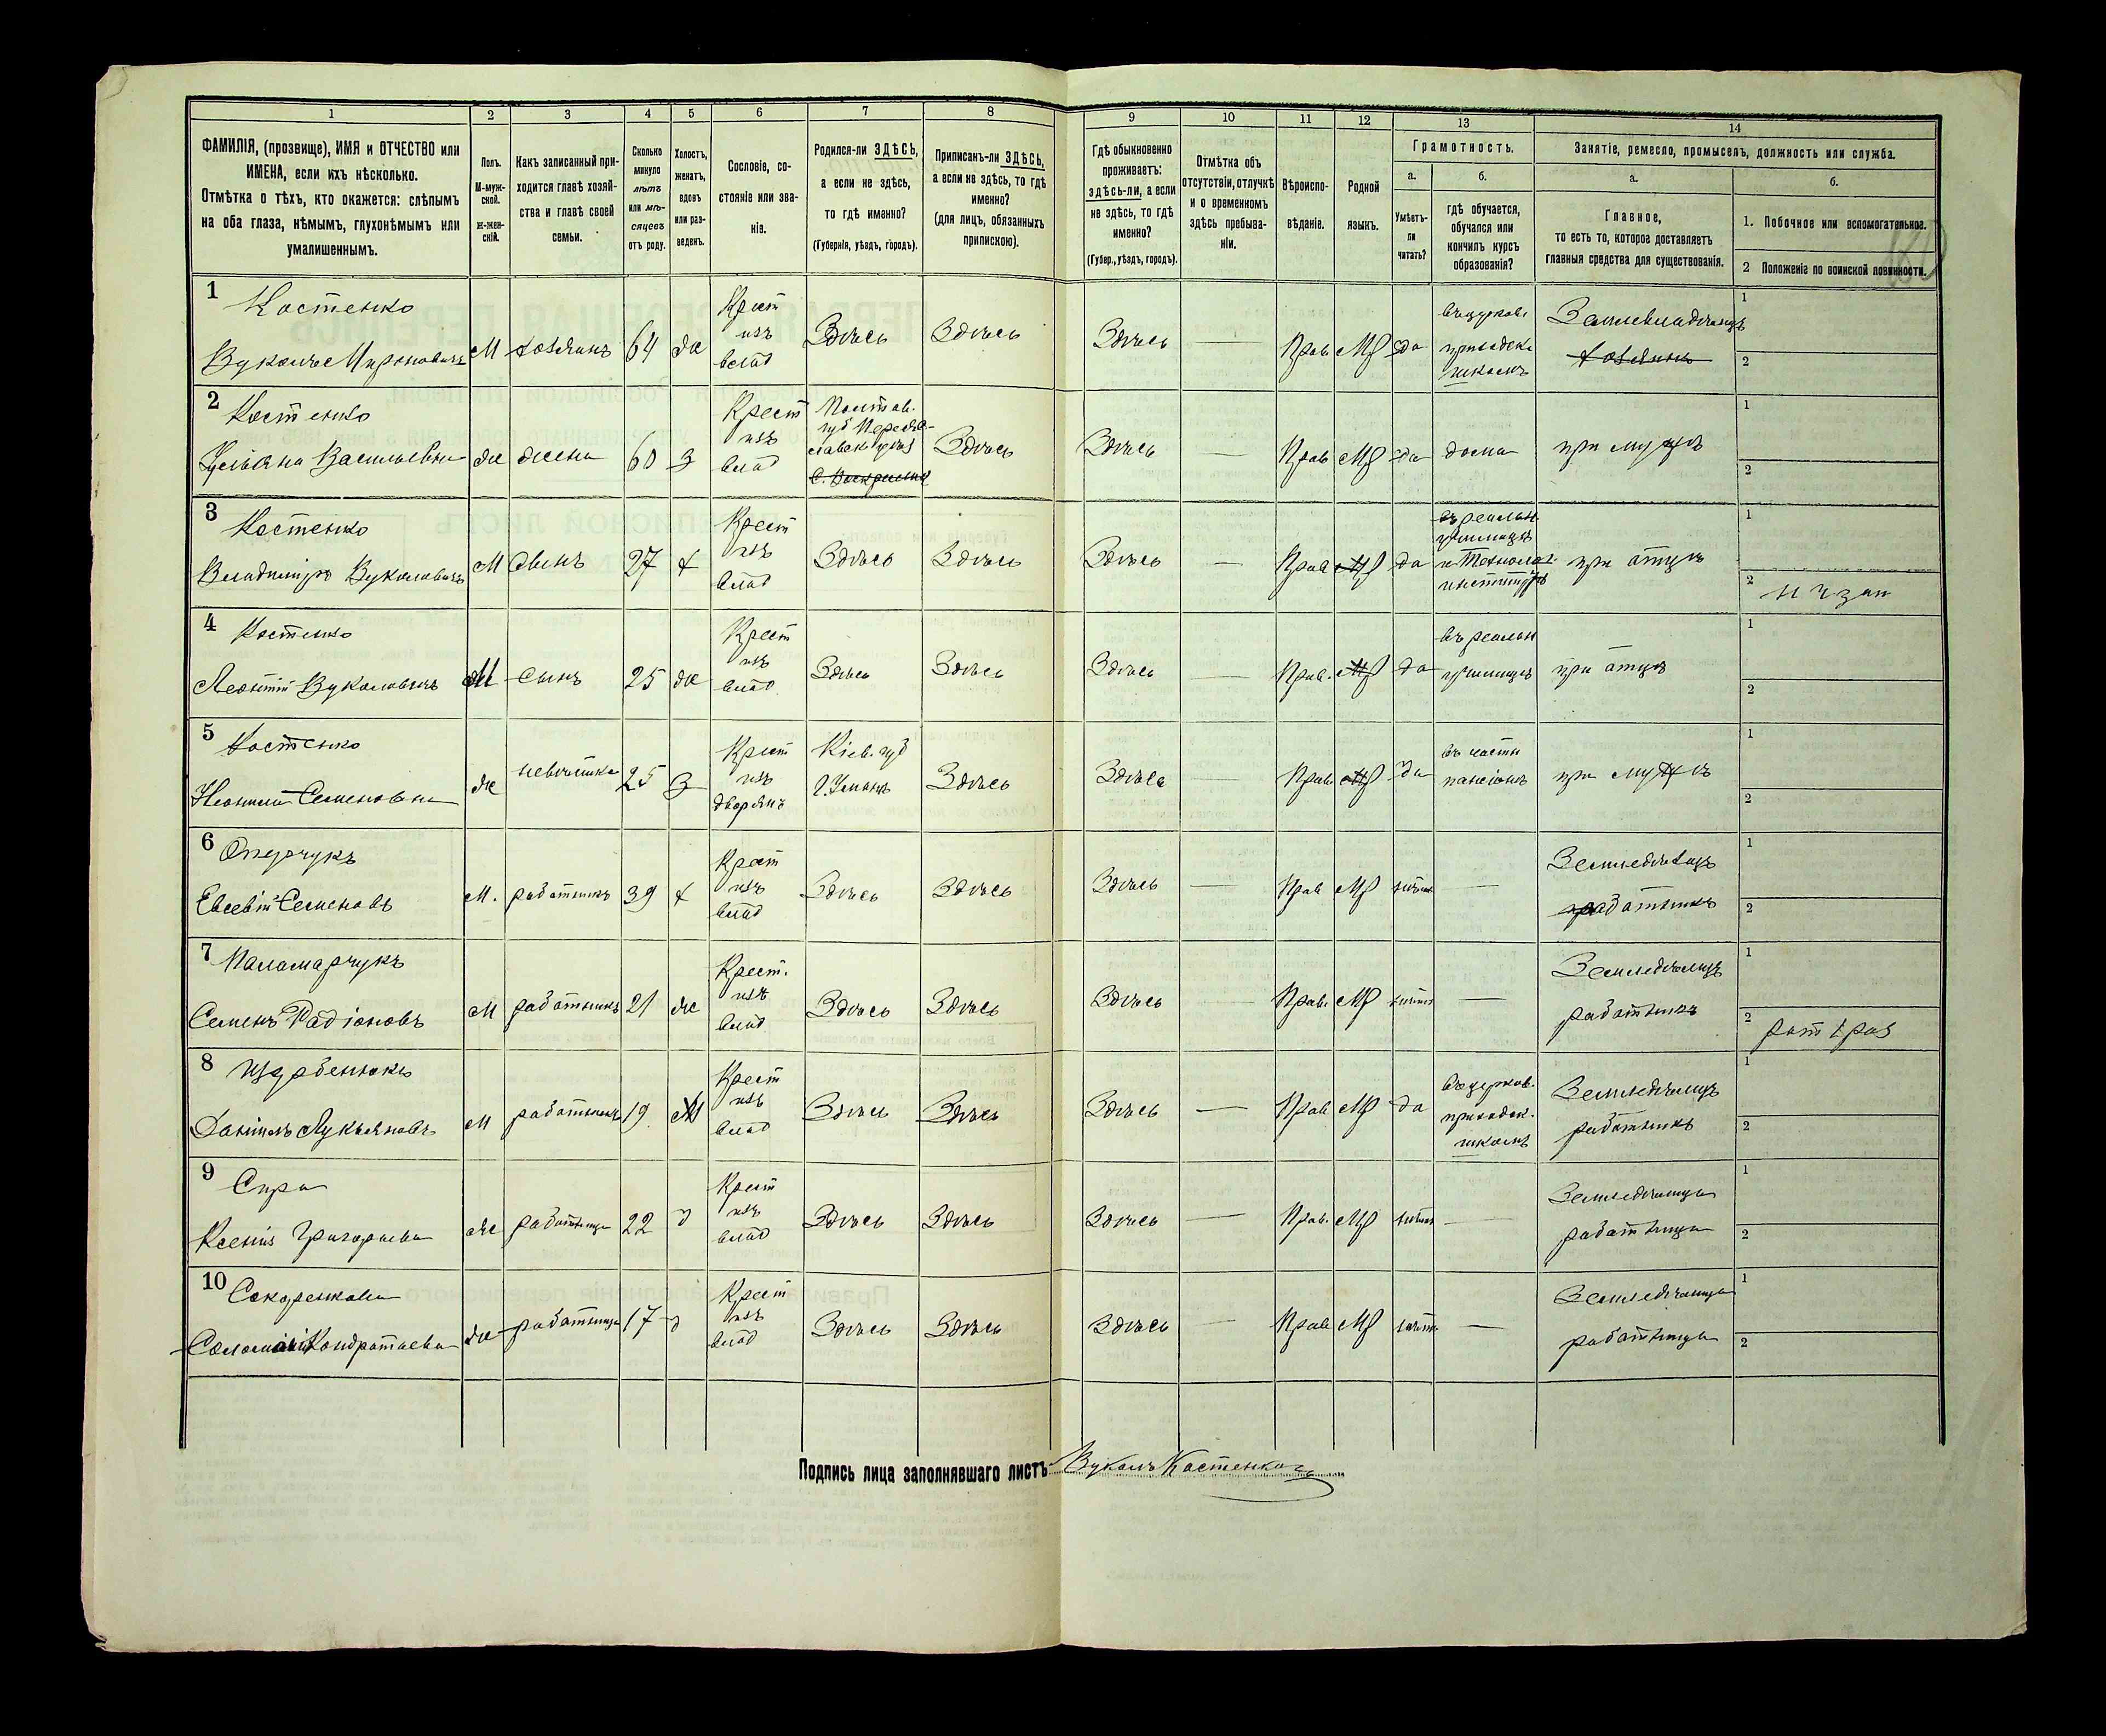 1
2
3
4
5
6
7
8
ФАМИЛІЯ, (прозвище), ИМЯ и ОТЧЕСТВО или
ИМЕНА, если ихъ нѣсколько.
Отмѣтка о тѣхъ, кто окажется: слѣпымъ
на оба глаза, нѣмымъ, глухонѣмымъ или
умалишеннымъ.
Полъ.
М-муж-
ской.
ж-жен-
скій.
Какъ записанный при-
ходится главѣ хозяй-
ства и главѣ своей
семьи.
Сколько
минуло
лѣтъ
или мѣ-
сяцевъ
отъ роду.
Холостъ,
женатъ,
вдовъ
или раз-
веденъ.
Сословіе, со-
стояніе или зва-
ніе.
Родился-ли ЗДѢСЬ,
а если не здѣсь,
то гдѣ именно?
(Губернія, уѣздъ, городъ).
Приписанъ-ли ЗДѢСЬ,
а если не здѣсь, то гдѣ
именно?
(для лицъ, обязанныхъ
припискою).
9
10
11
12
13
14
Гдѣ обыкновенно
проживаетъ:
здѣсь-ли, а если
не здѣсь, то гдѣ
именно?
(Губер., уѣздъ, городъ).
Отмѣтка объ
отсутствіи, отлучкѣ
и о временномъ
здѣсь пребыва-
ніи.
Вѣроиспо-
вѣданіе.
Родной
языкъ.
Грамотность.
а.
Умѣетъ-
ли
читать?
б.
гдѣ обучается,
обучался или
кончилъ курсъ
образованія?
Занятіе, ремесло, промыселъ, должность или служба.
а.
Главное,
то есть то, которое доставляетъ
главныя средства для существованія.
б.
1. Побочное или вспомогательное.
2 Положеніе по воинской повинности.
1
Костенко
Вуколъ Мироновичъ
М
хозяинъ
64
ж
Крест
изъ
влад
Здѣсь
Здѣсь
Здѣсь
—
Прав
Мр
да
въ церков.
приходск.
школѣ
Землевладѣлецъ
хозяинъ
1
2
2
Костенко
Ульяна Васильевна
ж
жена
60
з
Крест
изъ
влад
Полтав.
губ Переяс-
лавск уѣзд
С. Воскресенка
Здѣсь
Здѣсь
—
Прав
Мр
да
дома
при мужѣ
1
2
3
Костенко
Владиміръ Вуколовичъ
М
сынъ
27
х
Крест
изъ
влад
Здѣсь
Здѣсь
Здѣсь
—
Прав
Мр
да
въ реальн.
училищѣ
и Технолог.
институтѣ
при отцѣ
1
2
4
Костенко
Леонтій Вуколовичъ
М
сынъ
25
ж
Крест
изъ
влад
Здѣсь
Здѣсь
Здѣсь
—
Прав.
Мр
да
въ реальн
училищѣ
при отцѣ
1
2
5
Костенко
Семеновна
ж
невѣстка
25
з
Крест
изъ
дворянъ
Кіев. губ
г. Умань
Здѣсь
Здѣсь
—
Прав
Мр
да
въ частн
пансіонѣ
при мужѣ
1
2
6
Евсевій Семеновъ
М.
работникъ
39
х
Крест
изъ
влад
Здѣсь
Здѣсь
Здѣсь
—
Прав
Мр
—
Земледѣлецъ
работникъ
1
2
7
Паламарчукъ
Семенъ Радіоновъ
М
работникъ
21
ж
Крест.
изъ
влад
Здѣсь
Здѣсь
Здѣсь
—
Прав.
Мр
—
Земледѣлецъ
работникъ
1
2
рат 1 раз
8
Даніилъ Лукьяновъ
М
работникъ
19
Крест
изъ
влад
Здѣсь
Здѣсь
Здѣсь
—
Прав
Мр
да
въ церков.
приходск.
школѣ
Земледѣлецъ
работникъ
1
2
9
Сира
Ксенія Григорьева
ж
работница
22
д
Крест
изъ
влад
Здѣсь
Здѣсь
Здѣсь
—
Прав.
Мр
—
Земледѣлица
работница
1
2
10
Сокоренкова
Соломонія Кондратьева
ж
работница
17
д
Крест
изъ
влад
Здѣсь
Здѣсь
Здѣсь
—
Прав
Мр
—
Земледѣлица
работница
1
2
Подпись лица заполнявшаго листъ Вуколъ Костенко